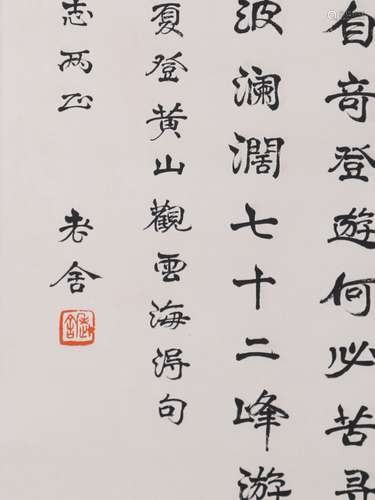 自奇登遊何必苦寻
波澜濶七十二峰游
夏登黄山觀雲海得句
志两正
老舍
老舍